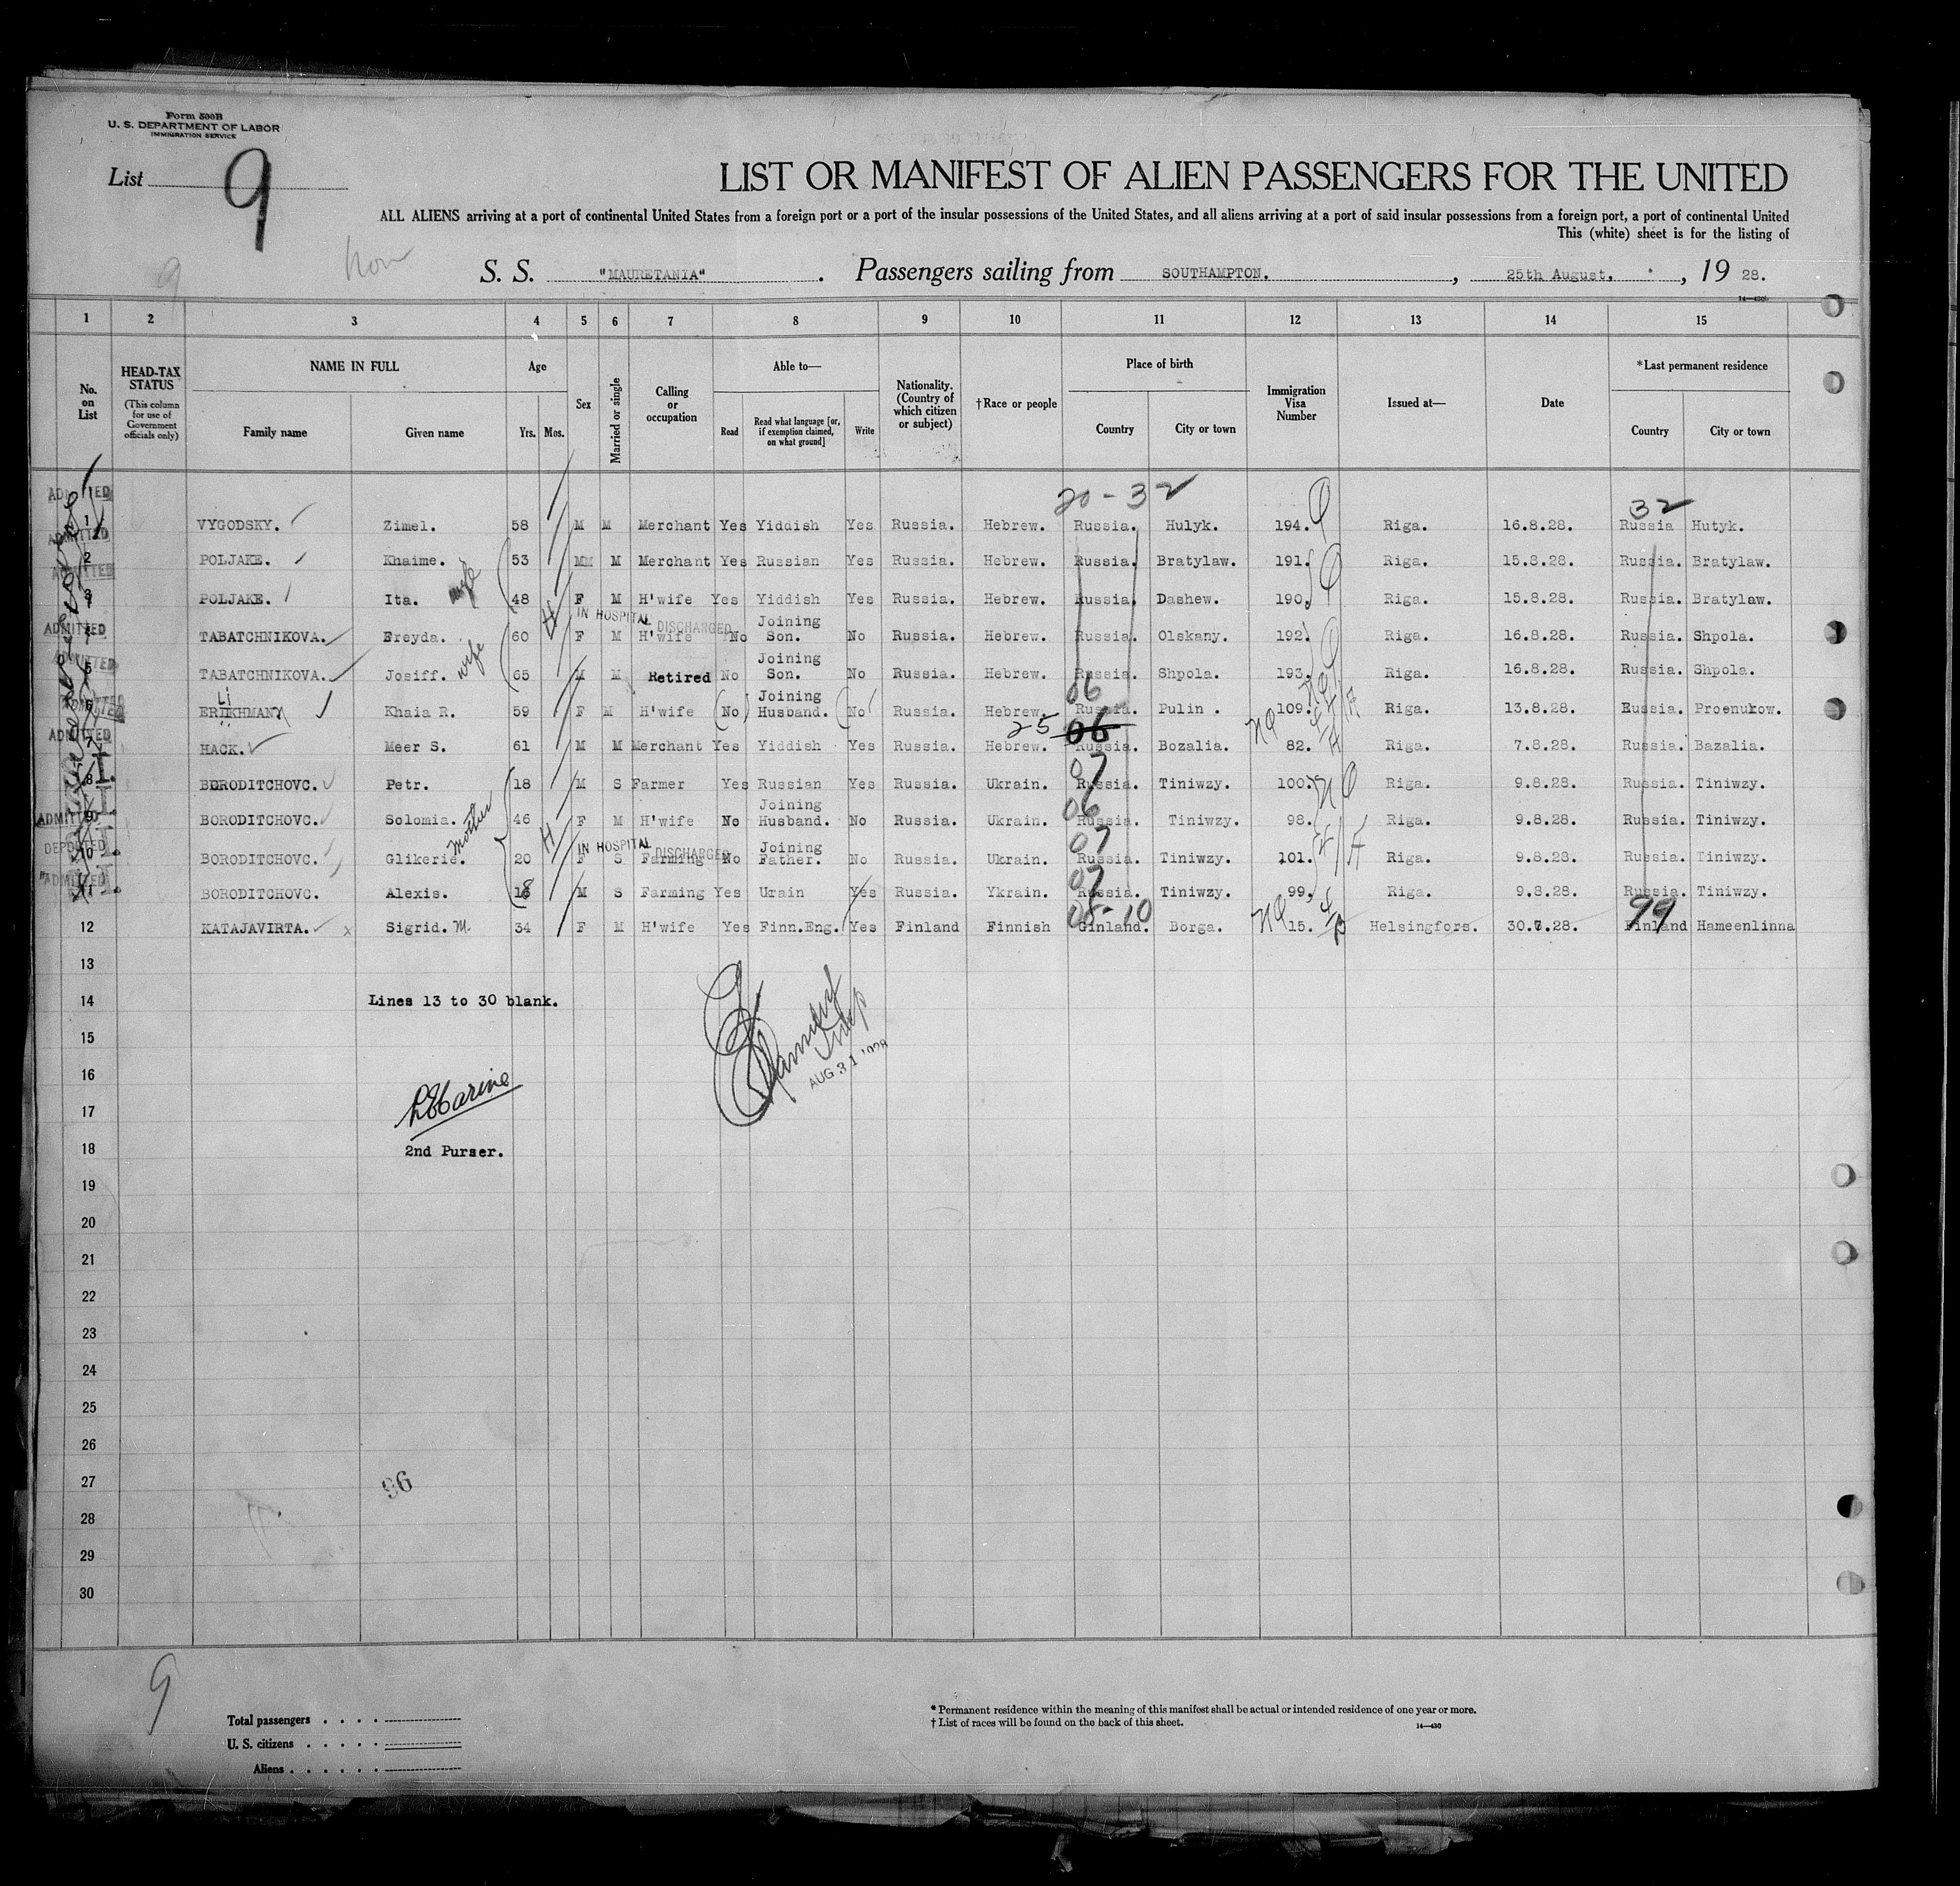 Form 500B
U. S. DEPARTMENT OF LABOR
IMMIGRATION SERVICE
List 9
LIST OR MANIFEST OF ALIEN PASSENGERS FOR THE UNITED
ALL ALIENS arriving at a port of continental United States from a foreign port or a port of the insular possessions of the United States, and all aliens arriving at a port of said insular possessions from a foreign port, a port of continental United
This (white) sheet is for the listing of
S. S. "MAURETANIA". Passengers sailing from SOUTHAMPTON. , 25th August. , 19 28.
1 2 3 4 5 6 7 8 9 10 11 12 13 14 15
No. on List
HEAD-TAX STATUS (This column for use of Government officials only)
NAME IN FULL Family name Given name
Age Yrs. Mos.
Sex
Married or single
Calling or occupation
Able to— Read Read what language [or, if exemption claimed, on what ground] Write
Nationality. (Country of which citizen or subject)
†Race or people
Place of birth Country City or town
Immigration Visa Number
Issued at—
Date
*Last permanent residence Country City or town
20-32 32
1 VYGODSKY. Zimel. 58 M M Merchant Yes Yiddish Yes Russia. Hebrew. Russia. Hulyk. 194. Riga. 16.8.28. Russia Hutyk.
2 POLJAKE. Khaime. 53 M M Merchant Yes Russian Yes Russia. Hebrew. Russia. Bratylaw. 191. Riga. 15.8.28. Russia. Bratylaw.
3 POLJAKE. Ita. wife 48 F M H'wife Yes Yiddish Yes Russia. Hebrew. Russia. Dashew. 190. Riga. 15.8.28. Russia. Bratylaw.
IN HOSPITAL DISCHARGED
4 TABATCHNIKOVA. Freyda. wife 60 F M H'wife No Joining Son. No Russia. Hebrew. Russia. Olskany. 192. Riga. 16.8.28. Russia. Shpola.
5 TABATCHNIKOVA. Josiff. 65 M M Retired No Joining Son. No Russia. Hebrew. Russia. Shpola. 193. Riga. 16.8.28. Russia. Shpola.
6 Khaia R. 59 F M H'wife (No) Joining Husband. (No) Russia. Hebrew. 06 Russia. Pulin . 109. Riga. 13.8.28. Russia. Proenukow.
7 HACK. Meer S. 61 M M Merchant Yes Yiddish Yes Russia. Hebrew. 25 06 Russia. Bozalia. 82. Riga. 7.8.28. Russia. Bazalia.
8 BORODITCHOVC. Petr. 18 M S Farmer Yes Russian Yes Russia. Ukrain. 07 Russia. Tiniwzy. 100. Riga. 9.8.28. Russia. Tiniwzy.
9 BORODITCHOVC. Solomia. Mother 46 F M H'wife No Joining Husband. No Russia. Ukrain. 06 Russia. Tiniwzy. 98. Riga. 9.8.28. Russia. Tiniwzy.
IN HOSPITAL DISCHARGED
10 BORODITCHOVC. Glikerie. 20 F S Farming No Joining Father. No Russia. Ukrain. 07 Russia. Tiniwzy. 101. Riga. 9.8.28. Russia. Tiniwzy.
11 BORODITCHOVC. Alexis. 18 M S Farming Yes Urain Yes Russia. Ykrain. 07 Russia. Tiniwzy. 99. Riga. 9.8.28. Russia. Tiniwzy.
12 KATAJAVIRTA. x Sigrid. M. 34 F M H'wife Yes Finn.Eng. Yes Finland Finnish 08-10 Ginland. Borga. 15. Helsingfors. 30.7.28. 99 Finland Hameenlinna
ADMITTED
DEPORTED
ADMITTED
13
14 Lines 13 to 30 blank.
15
16 AUG 31 1928
17
18 2nd Purser.
19
20
21
22
23
24
25
26
27 96
28
29
30
9
Total passengers . . . .
U. S. citizens . . . . .
Aliens . . . . . .
* Permanent residence within the meaning of this manifest shall be actual or intended residence of one year or more.
† List of races will be found on the back of this sheet.
14—430